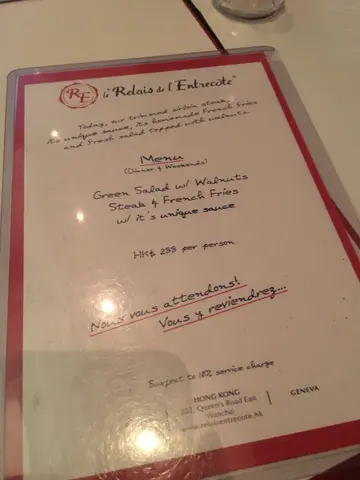 RE le "Relais de l'Entrecôte"
Today, our trimmed sirloin steak,
its unique sauce, its homemade French fries
and fresh salad topped with walnuts
Menu
(Dinner & Weekends)
Green Salad w/ Walnuts
Steak & French Fries
w/ it's unique sauce
HK$ 233 per person
Nous vous attendons!
Vous y reviendrez...
Subject to 10% service charge
HONG KONG
GENEVA
202, Queen's Road East
Wanchai
www.relaisentrecote.hk